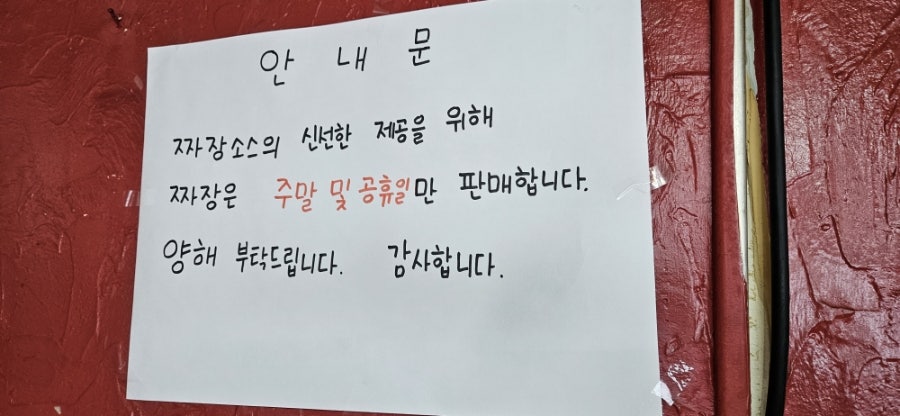 안 내 문
짜장소스의 신선한 제공을 위해
짜장은 주말 및 공휴일만 판매합니다.
양해 부탁드립니다. 감사합니다.